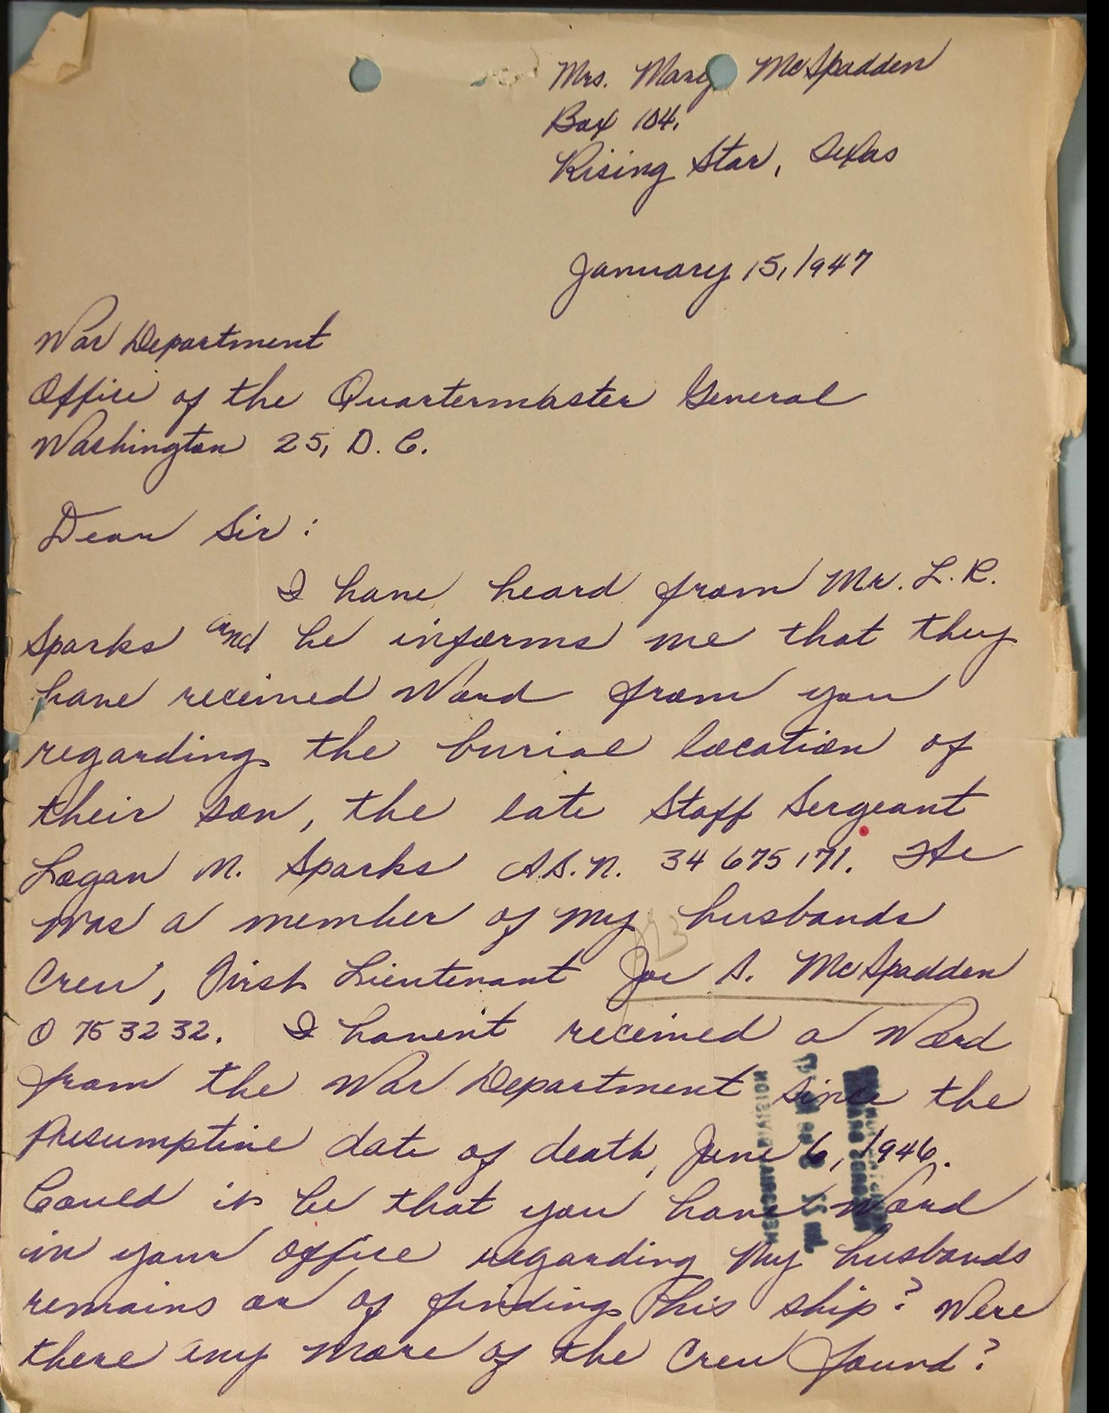 Mrs. Mary McSpadden
Box 104.
Rising Star, Texas
January 15, 1947
War Department
Office of the Quartermaster General
Washington 25, D. C.
Dear Sir:
I have heard from Mr. L. R.
Sparks and he informs me that they
have received word from you
regarding the burial location of
their son, the late Staff Sergeant
Logan M. Sparks A.S.N. 34 675 171. He
was a member of my husbands
Crew, First Lieutenant Joe S. McSpadden
O 753232. I haven't received a word
from the War Department since the
Presumptive date of death, June 6, 1946.
Could it be that you have word
in your office regarding my husbands
remains or of finding his ship? Were
there any more of the Crew found?